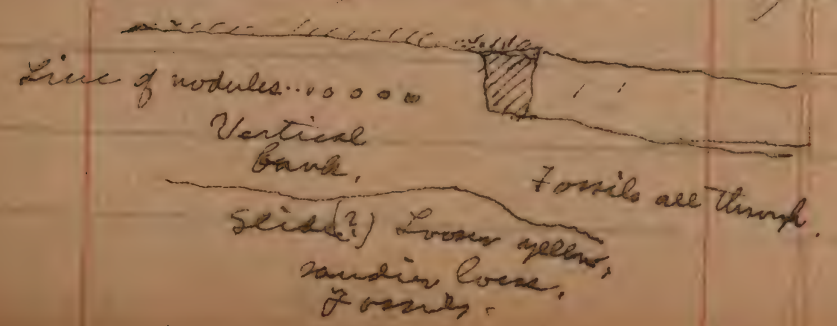 Line of nodules...
Vertical
bank.
Fossils all through.
Slide(?) Looser yellow,
sandier loess.
Fossils.